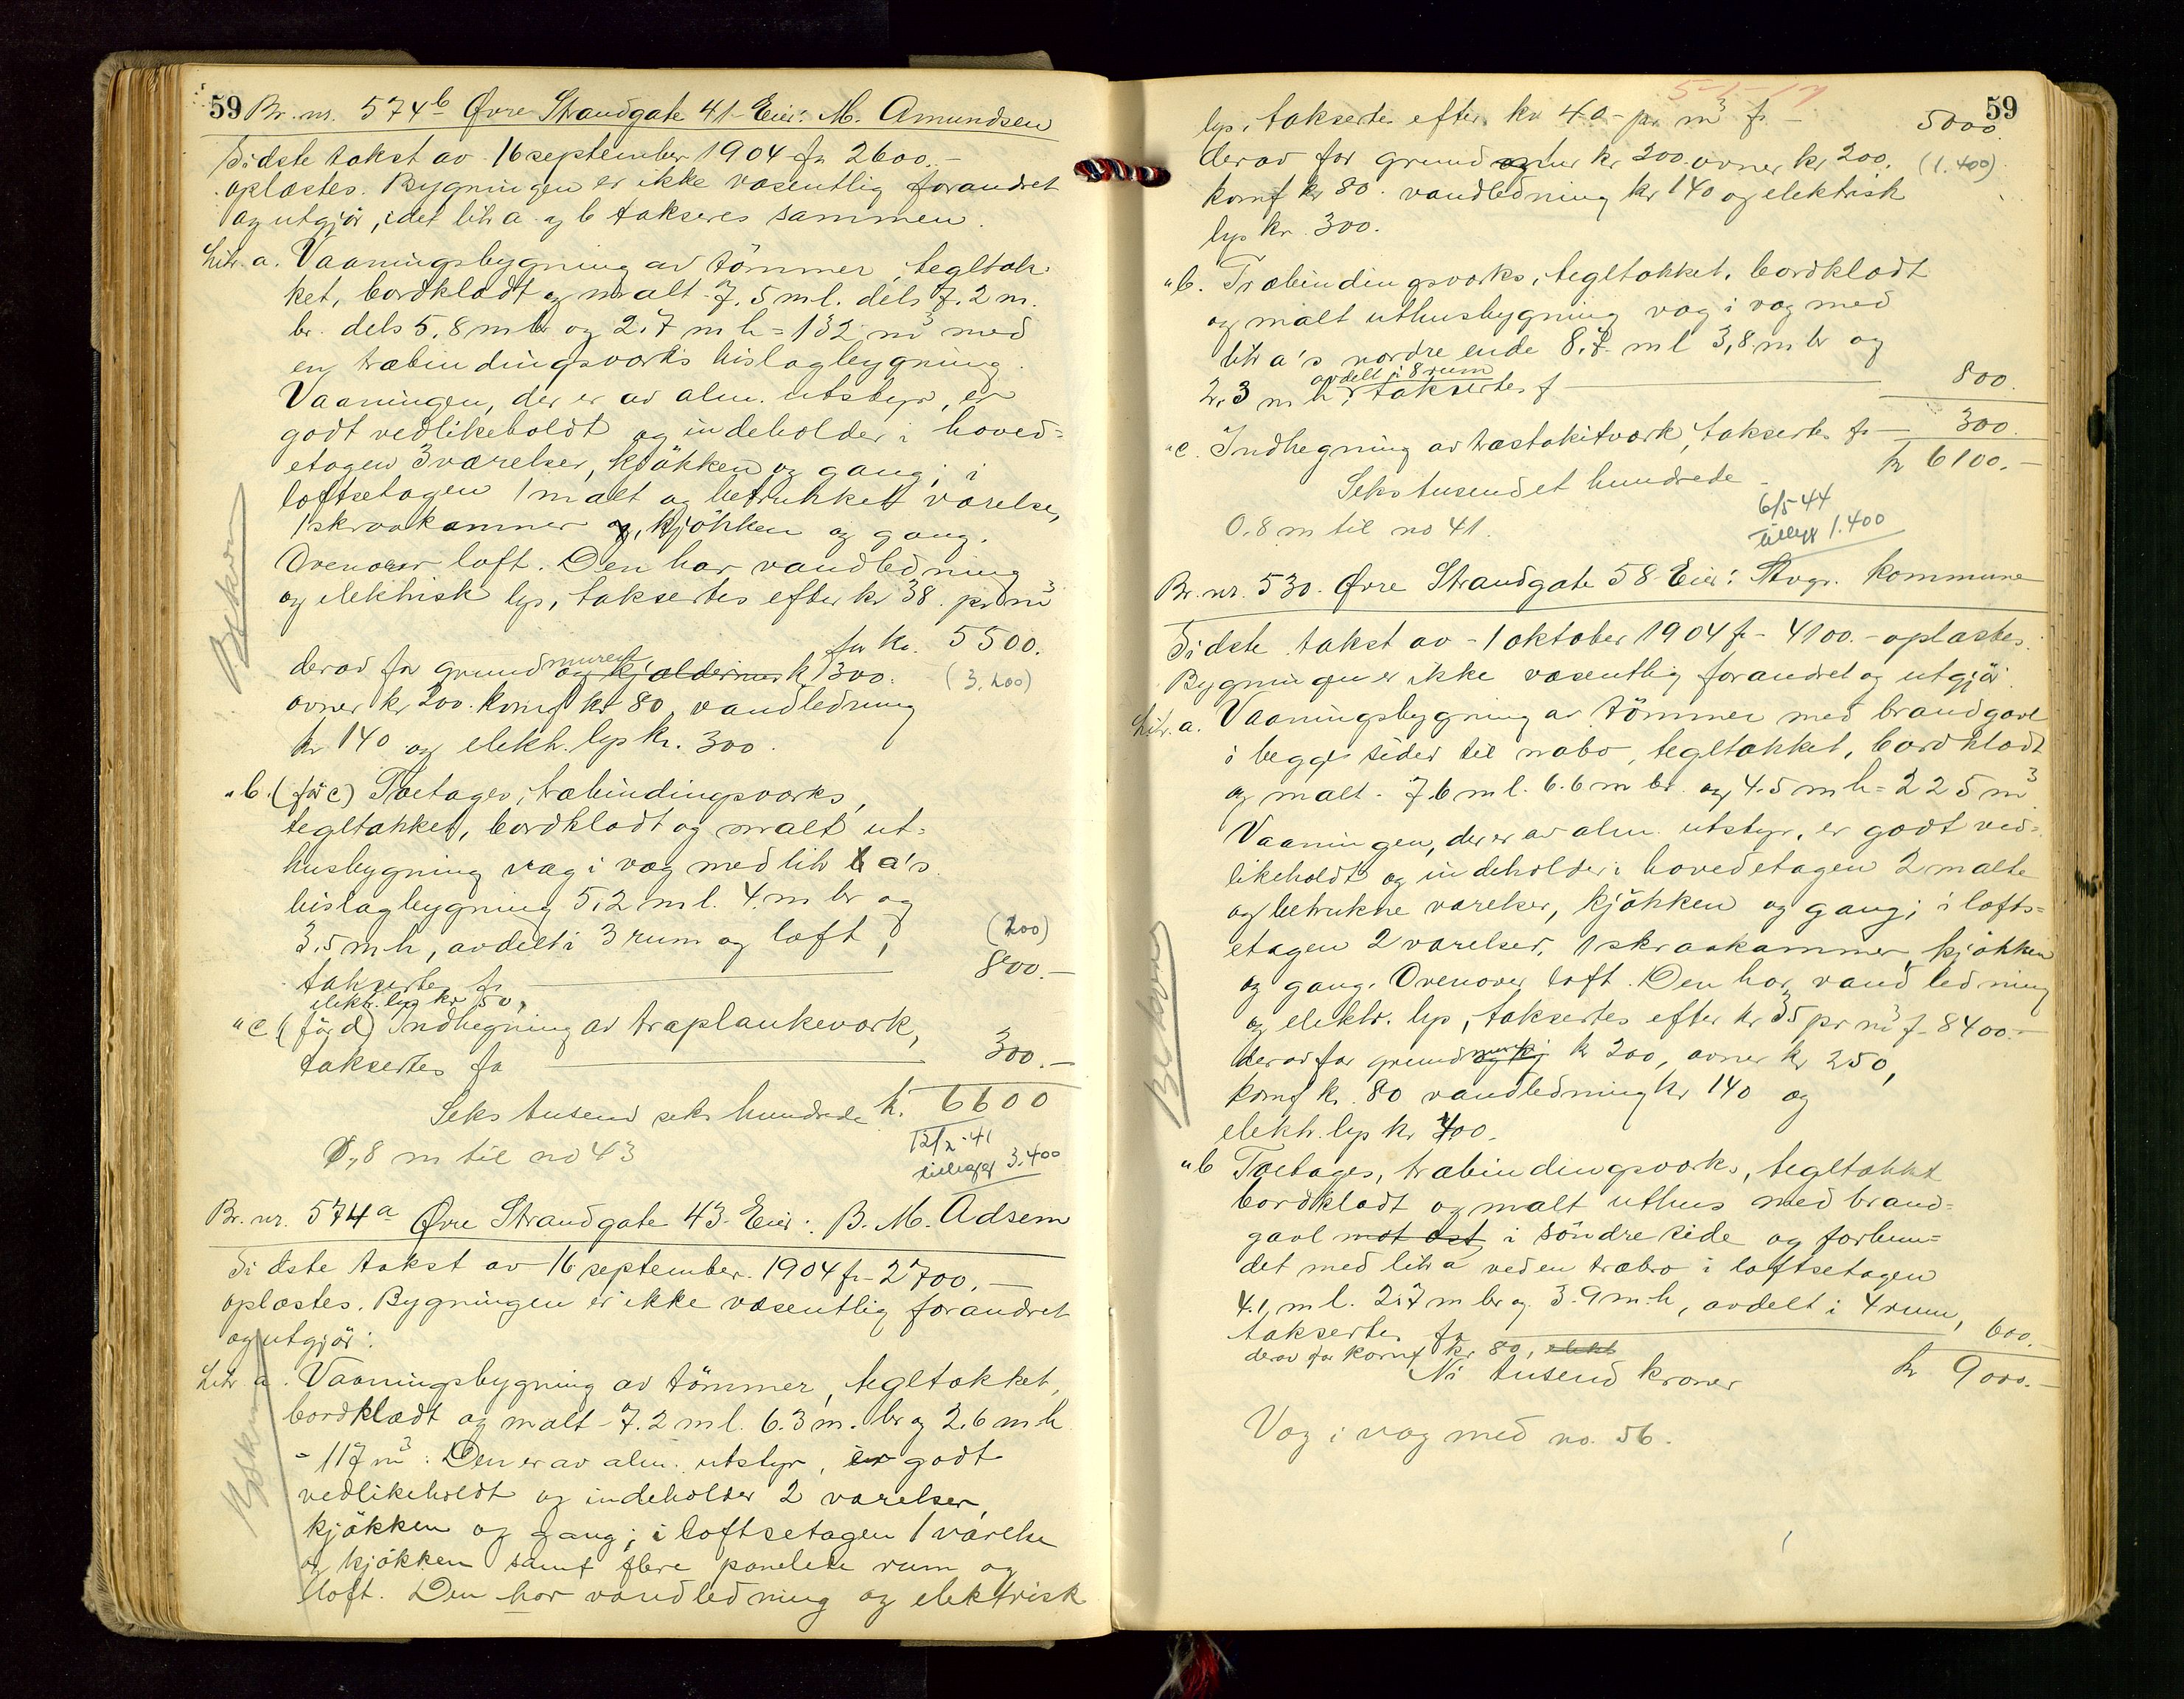 59 Br. nr. 574b Øvre Strandgate 41 - Eier: M. Amundsen
Sidste takst av 16 september 1904 fr 2600.-
oplæstes. Bygningen er ikke væsentlig forandret
og utgjör, idet litr a og b takseres sammen.
Litr. a. Vaaningsbygning av tömmer, tegltæk-
ket, bordklædt og malt - 7.5 m l. dels 7.2 m.
br. dels 5.8 m br og 2.7 m h = 132 m3 med
en træbindingsværks bislagbygning.
Vaaningen, der er av alm. utstyr, er
godt vedlikeholdt og indeholder i hoved=
etagen 3 værelser, kjökken og gang; i
loftsetagen 1 malt og betrukket værelse,
1 skraakammer og, kjökken og gang.
Ovenover loft. Den har vandledning
og elektrisk lys, taksertes efter kr 38. pr m3
for kr. 5500.
derav for grundmuren og kjældermur kr 1300. (3.200)
ovner kr 200. komf kr 80, vandledning
kr 140 og elektr. lys kr. 300.
" b. (för c) Toetages, træbindingsværks,
tegltækket, bordklædt og malt ut=
husbygning væg i væg med litr b a's
bislagbygning 5.2 m l. 4. m br og
3.5 m h, avdelt i 3 rum og loft, (200)
taksertes fr 800.-
elektr. lys kr 50,
" c (för d) Indhegning av træplankeværk,
taksertes for 300.-
Seks tusend seks hundrede k. 6600
0,8 m til no 43
12/2-41
tillegg 3.400
Br. nr. 574a Øvre Strandgate 43 - Eier: B. M. Adsem
Sidste takst av 16 september 1904 fr - 2700.-
oplæstes. Bygningen er ikke væsentlig forandret
og utgjör:
Litr a. Vaaningsbygning av tömmer, tegltækket,
bordklædt og malt - 7.2 m l. 6.3 m. br og 2.6 m h
= 117 m3. Den er av alm. utstyr, er godt
vedlikeholdt og indeholder 2 værelser,
kjökken og gang; i loftsetagen 1 værelse
og kjökken samt flere panelete rum og
loft. Den har vandledning og elektrisk
59
lys, taksertes efter kr 40- pr m3 fr - 5000
derav for grundmur kr 200. ovner kr 200. (1.400)
komf kr 80. vandledning kr 140 og elektrisk
lys kr. 300.
" b. Træbindingsværks, tegltækket, bordklædt
og malt uthusbygning væg i væg med
litr a's nordre ende 8.7 m l 3,8 m br og
avdelt i 8 rum
2.3 m h, taksertes f 800.
" c. Indhegning av træstakitværk, taksertes fr 300.
kr 6100.-
Seks tusend et hundrede -
0.8 m til no 41.
6/5-44
tillegg 1.400
Br. nr. 530. Øvre Strandgate 58 - Eier: Stvgr. kommune
Sidste takst av - 1 oktober 1904 fr - 4100.- oplæstes.
Bygningen er ikke væsentlig forandret og utgjör
Litr. a. Vaaningsbygning av tömmer med brandgavl
i begge sider til nabo, tegltækket, bordklædt
og malt. 7.6 m l. 6.6 m br. og 4.5 m h = 225 m3
Vaaningen, der er av alm. utstyr, er godt ved=
likeholdt og indeholder i hovedetagen 2 malte
og betrukne værelser, kjökken og gang; i lofts=
etagen 2 værelser, 1 skraakammer, kjökken
og gang. Ovenover loft. Den har vandledning
og elektr. lys, taksertes efter kr 35 pr m3 f - 8400.-
derav for grundmur og kj kr 200, ovner kr 250,
komf kr. 80 vandledning kr 140 og
elektr. lys kr 400.
" b Toetages, træbindingsværks, tegltækket
bordklædt og malt uthus med brand=
gavl mot öst i söndre side og forbun=
det med litr a ved en træbro i loftsetagen
4.1 m l. 2.7 m br og 3.9 m h, avdelt i 4 rum,
taksertes for 600.
derav for komf kr 80, elekt
Ni tusend kroner kr 9000.-
Væg i væg med no. 56.